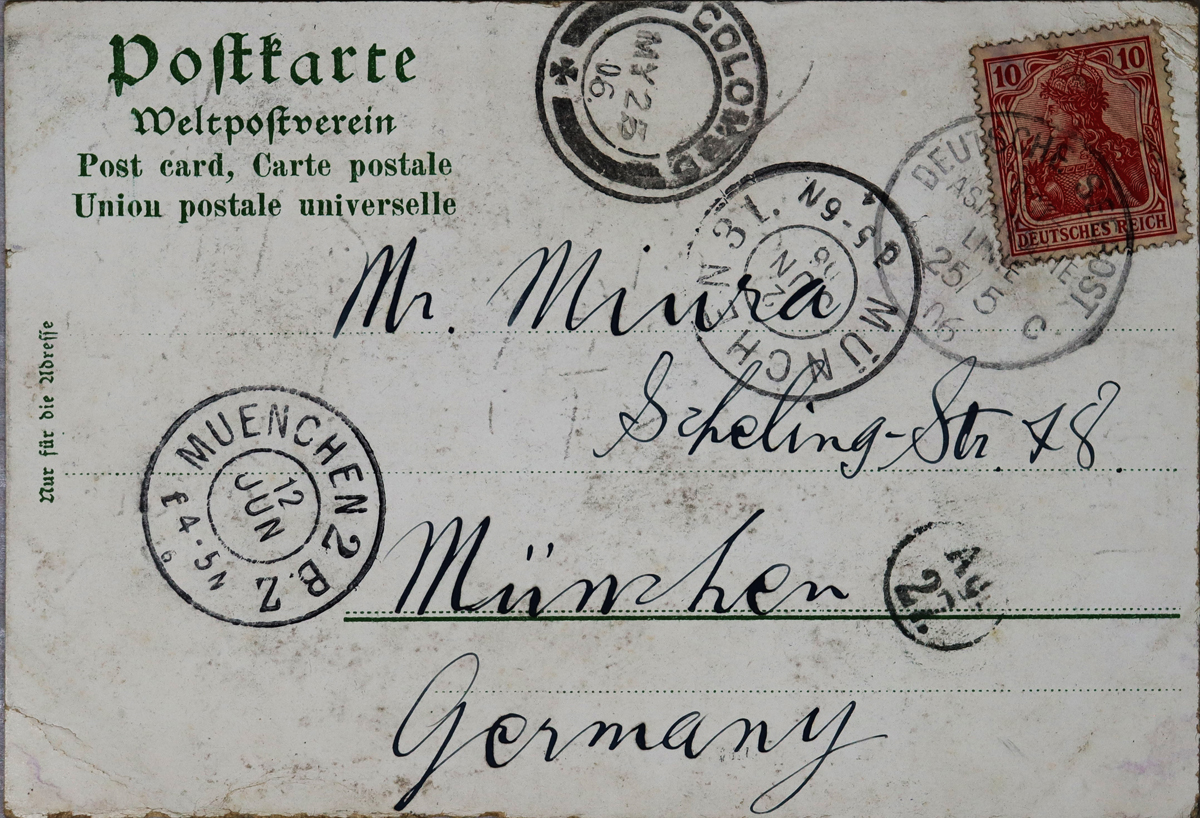 Postkarte
Weltpostverein
Post card, Carte postale
Union postale universelle
COLOMBO
MY 25
06.
10 10
DEUTSCHES REICH
DEUTSCHE SEEPOST
LINIE
25/5
06
c.
MÜNCHEN 31.
12
JUN
06
5-6N
Nur für die Adresse
Mr. Miura
Scheling-Str. 48.
MUENCHEN 2 B.Z.
12
JUN
4-5N
6
München
27.
Germany